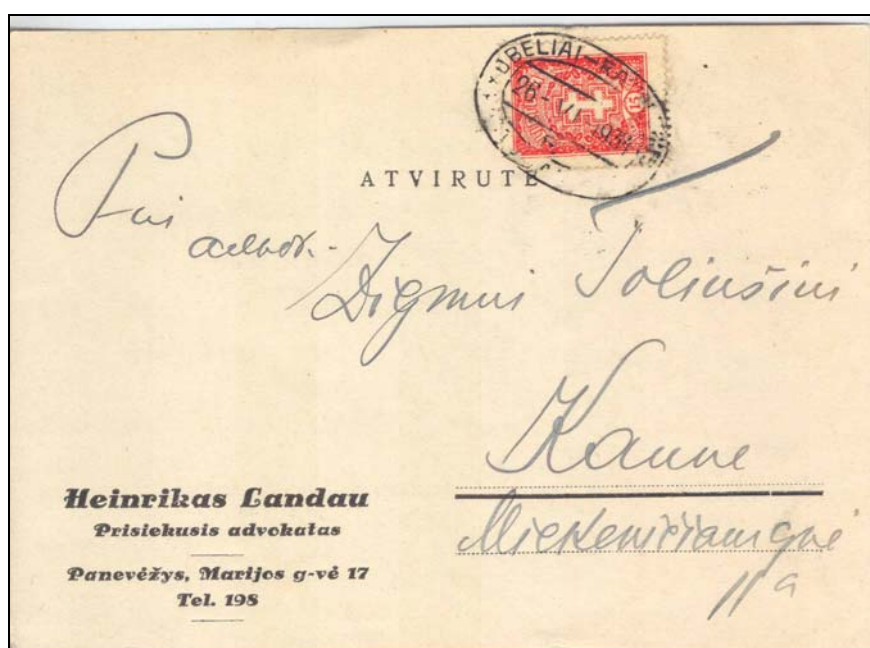 OBELIAI-KAUN
26-VI 193
15
ATVIRUTE
Pui
advok.
Zigmui Toliušiui
Kaune
Mickevičiaus gvė
11a
Heinrikas Landau
Prisiekusis advokatas
Panevėžys, Marijos g-vė 17
Tel. 198